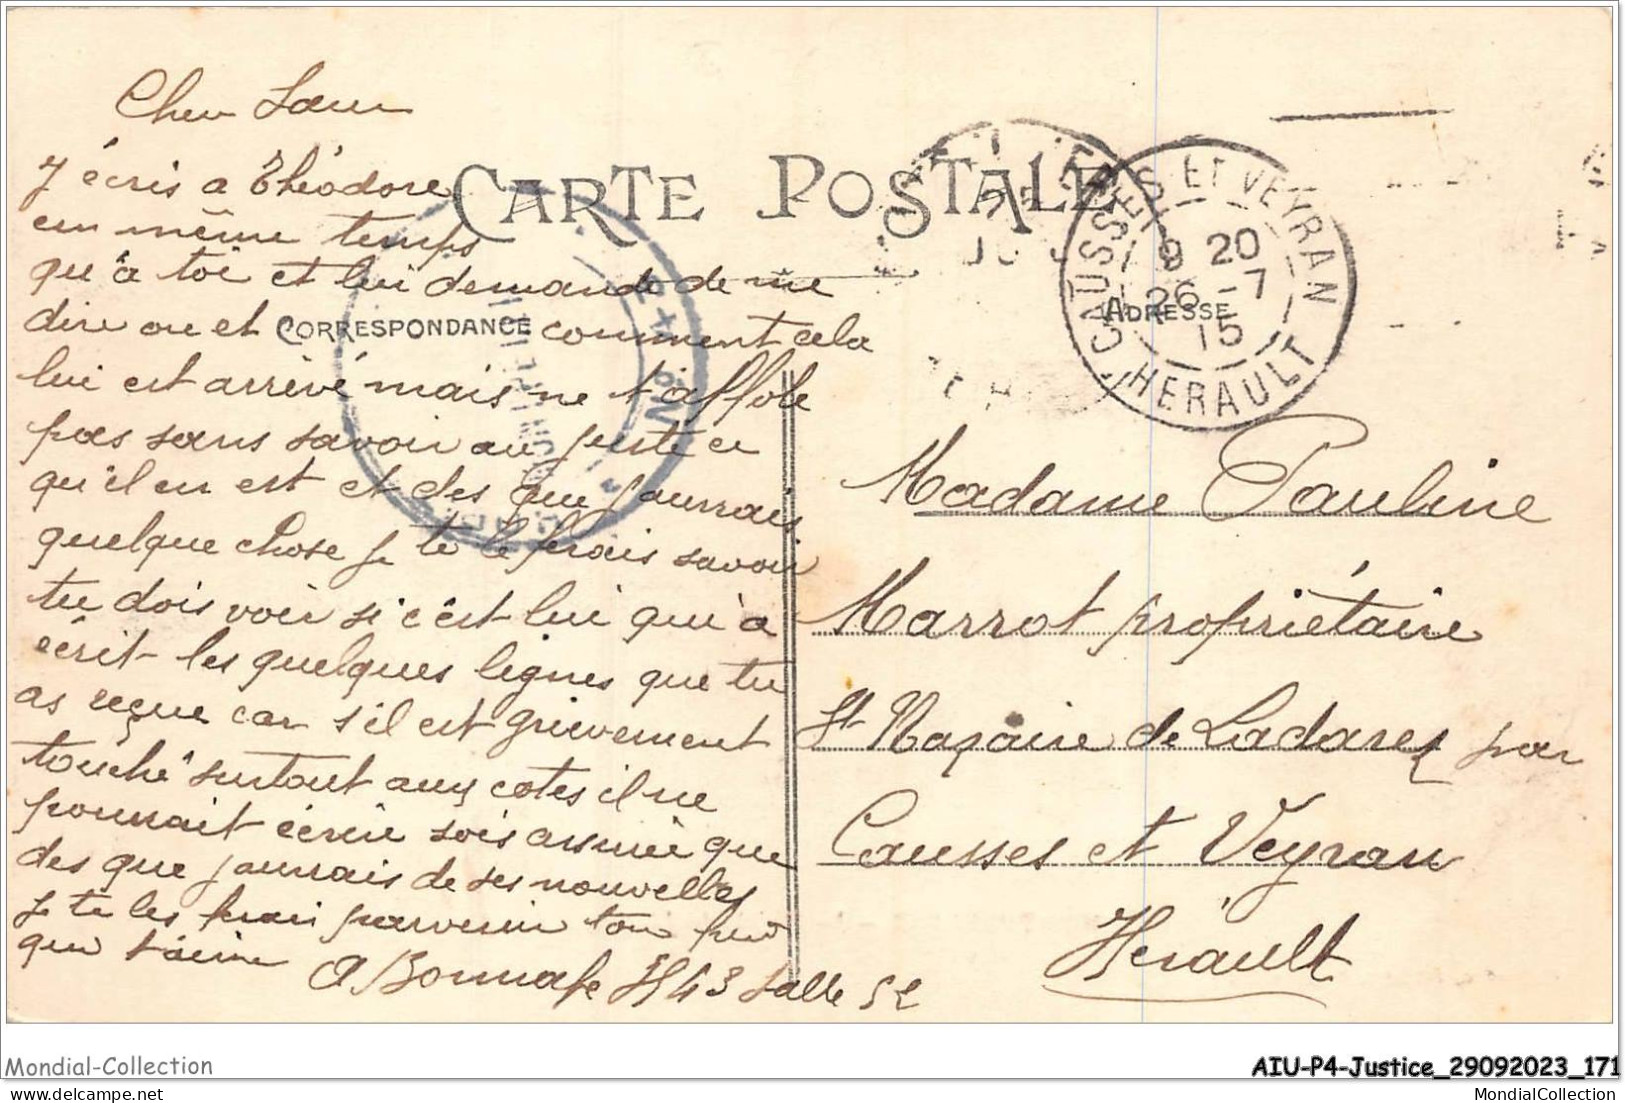 Cher Sœur
J'écris a Théodore
CARTE POSTALE
en même temps
qu'à toi et lui demande de me
dire ou et comment cela
CORRESPONDANCE
lui est arrivé mais ne t'affole
pas sans savoir au juste ce
qu'il en est et des que j'aurrais
quelque chose je te le ferais savoir
tu dois voir si c'est lui qui a
écrit les quelques lignes que tu
as reçue car s'il est grievement
touché surtout aux cotes il ne
pourrait écrire sois assurée que
des que j'aurrais de ses nouvelles
je te les ferai parvenir ton
qui t'aime
A Bonnafe H 43 Salle 52
CAUSSES ET VEYRAN
9 20
26 -7
15
HERAULT
ADRESSE
Madame Pauline
Marrot propriétaire
St Nazaire de Ladarez par
Causses et Veyran
Hérault
Mondial-Collection
AIU-P4-Justice_29092023_171
delcampe.net
MondialCollection